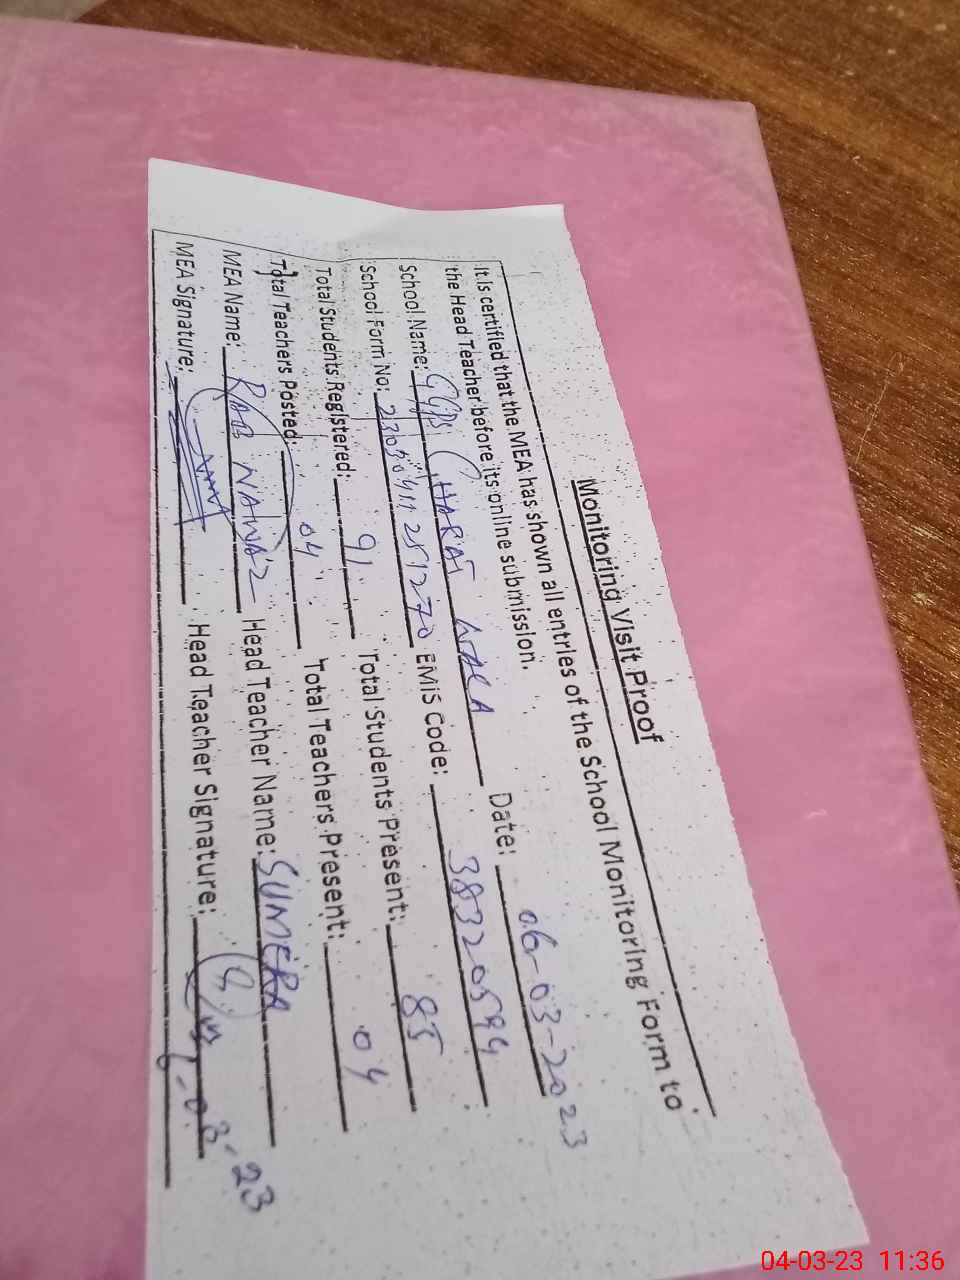 Monitoring Visit Proof
It is certified that the MEA has shown all entries of the School Monitoring Form to
the Head Teacher before its online submission.
School Name: GGPS CHARAT WALA Date: 06-03-2023
School Form No: EMIS Code: 38320594
Total Students Registered: 91 Total Students Present: 85
Total Teachers Posted: 04 Total Teachers Present: 04
MEA Name: RAB NAWAZ Head Teacher Name: SUMERA
MEA Signature: Head Teacher Signature:
04-03-23 11:36